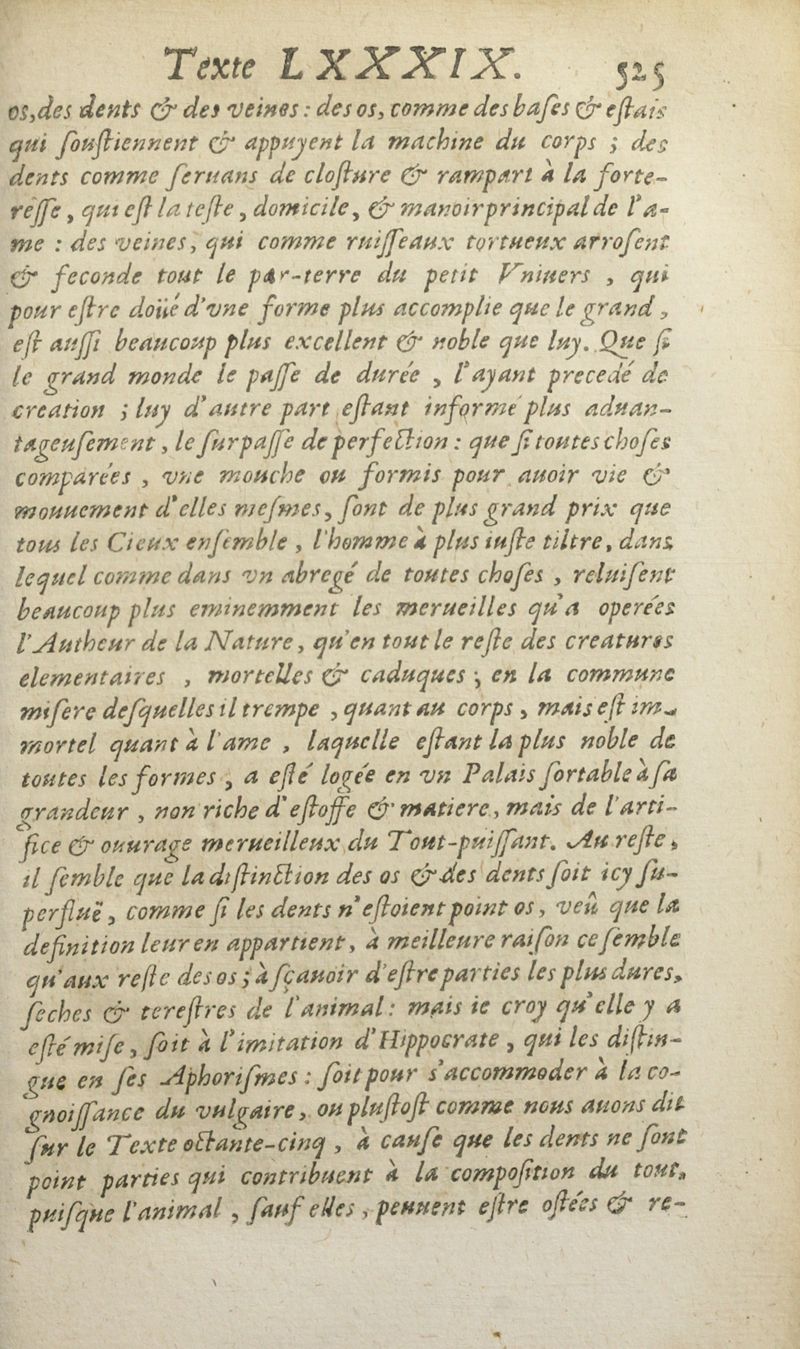 Texte LXXXIX. 525
os,des dents & des veines : des os, comme des bases & estais
qui soustiennent & appuyent la machine du corps ; des
dents comme seruans de closture & rampart à la forte-
resse , qui est la teste , domicile, & manoir principal de l'a-
me : des veines, qui comme ruisseaux tortueux arrosent
& feconde tout le par-terre du petit Vniuers , qui
pour estre doüé d'vne forme plus accomplie que le grand ,
est aussi beaucoup plus excellent & noble que luy. Que si
le grand monde le passe de durée , l'ayant precedé de
creation ; luy d'autre part estant informé plus aduan-
tageusement , le surpasse de perfection : que si toutes choses
comparées , vne mouche ou formis pour auoir vie &
mouuement d'elles mesmes, sont de plus grand prix que
tous les Cieux ensemble , l'homme à plus iuste tiltre, dans
lequel comme dans vn abregé de toutes choses , reluisent
beaucoup plus eminemment les merueilles qu'a operées
l'Autheur de la Nature, qu'en tout le reste des creatures
elementaires , mortelles & caduques ; en la commune
misere desquelles il trempe , quant au corps , mais est im-
mortel quant à l'ame , laquelle estant la plus noble de
toutes les formes , a esté logée en vn Palais sortable à sa
grandeur , non riche d'estoffe & matiere, mais de l'arti-
fice & ouurage merueilleux du Tout-puissant. Au reste ,
il semble que la distinction des os & des dents soit icy su-
perfluë , comme si les dents n'estoient point os, veu que la
definition leur en appartient, à meilleure raison ce semble
qu'aux reste des os ; à sçauoir d'estre parties les plus dures,
seches & terestres de l'animal : mais ie croy qu'elle y a
esté mise , soit à l'imitation d'Hippocrate , qui les distin-
gue en ses Aphorismes : soit pour s'accommoder à la co-
gnoissance du vulgaire, ou plustost comme nous auons dit
sur le Texte octante-cinq , à cause que les dents ne sont
point parties qui contribuent à la composition du tout,
puisque l'animal , sauf elles , peuuent estre ostées & re-